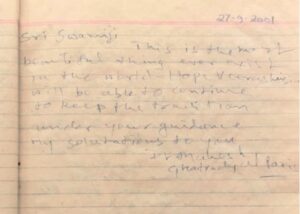 27-9-2001
Sri Swamiji
This is the most
beautiful thing ever exist
in the world. Hope
will be able to continue
to keep the tradition
under your guidance
My salutations to you